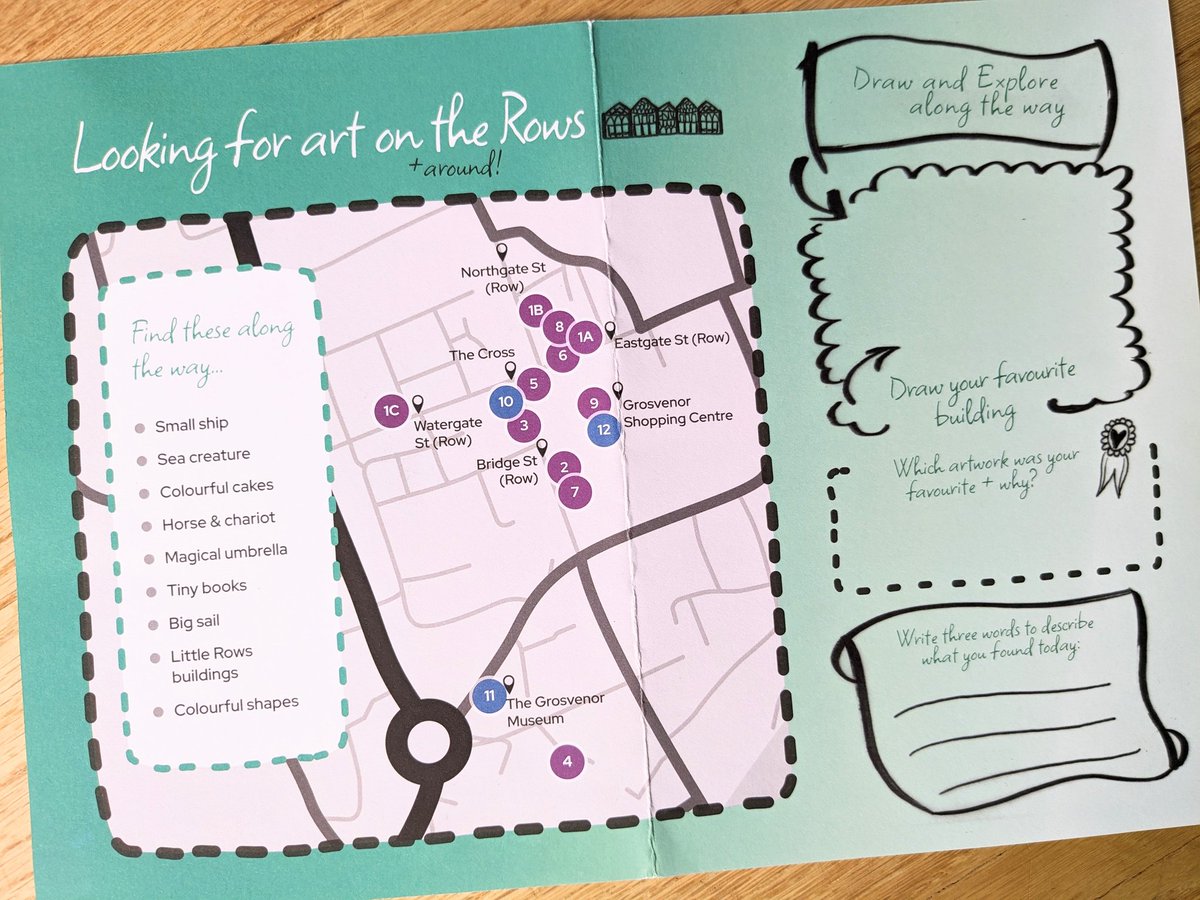 Looking for art on the Rows
+ around!
Find these along
the way...
Small ship
Sea creature
Colourful cakes
Horse & chariot
Magical umbrella
Tiny books
Big sail
Little Rows
buildings
Colourful shapes
Northgate St
(Row)
1B
8
1A
6
Eastgate St (Row)
The Cross
5
10
3
1C
Watergate
St (Row)
9
12
Grosvenor
Shopping Centre
Bridge St
(Row)
2
7
11
The Grosvenor
Museum
4
Draw and Explore
along the way
Draw your favourite
building
Which artwork was your
favourite + why?
Write three words to describe
what you found today: